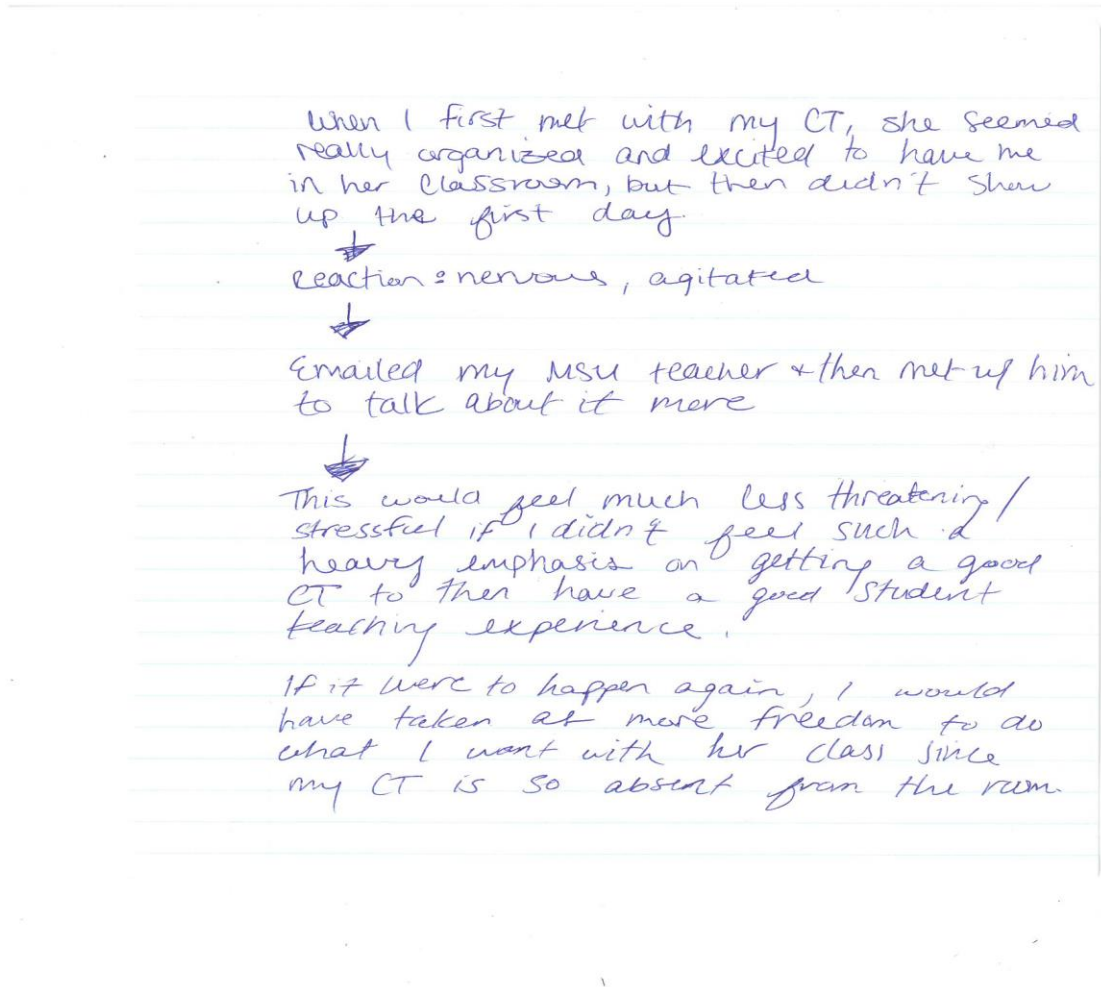 When I first met with my CT, she seemed
really organized and excited to have me
in her classroom, but then didn't show
up the first day.
Reaction: nervous, agitated
Emailed my MSU teacher & then met w/ him
to talk about it more
This would feel much less threatening/
stressful if I didn't feel such a
heavy emphasis on getting a good
CT to then have a good student
teaching experience.
If it were to happen again, I would
have taken at more freedom to do
what I want with her class since
my CT is so absent from the room.